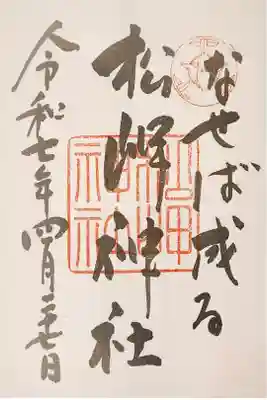 なせば成る
松岬神社
令和七年四月二十七日